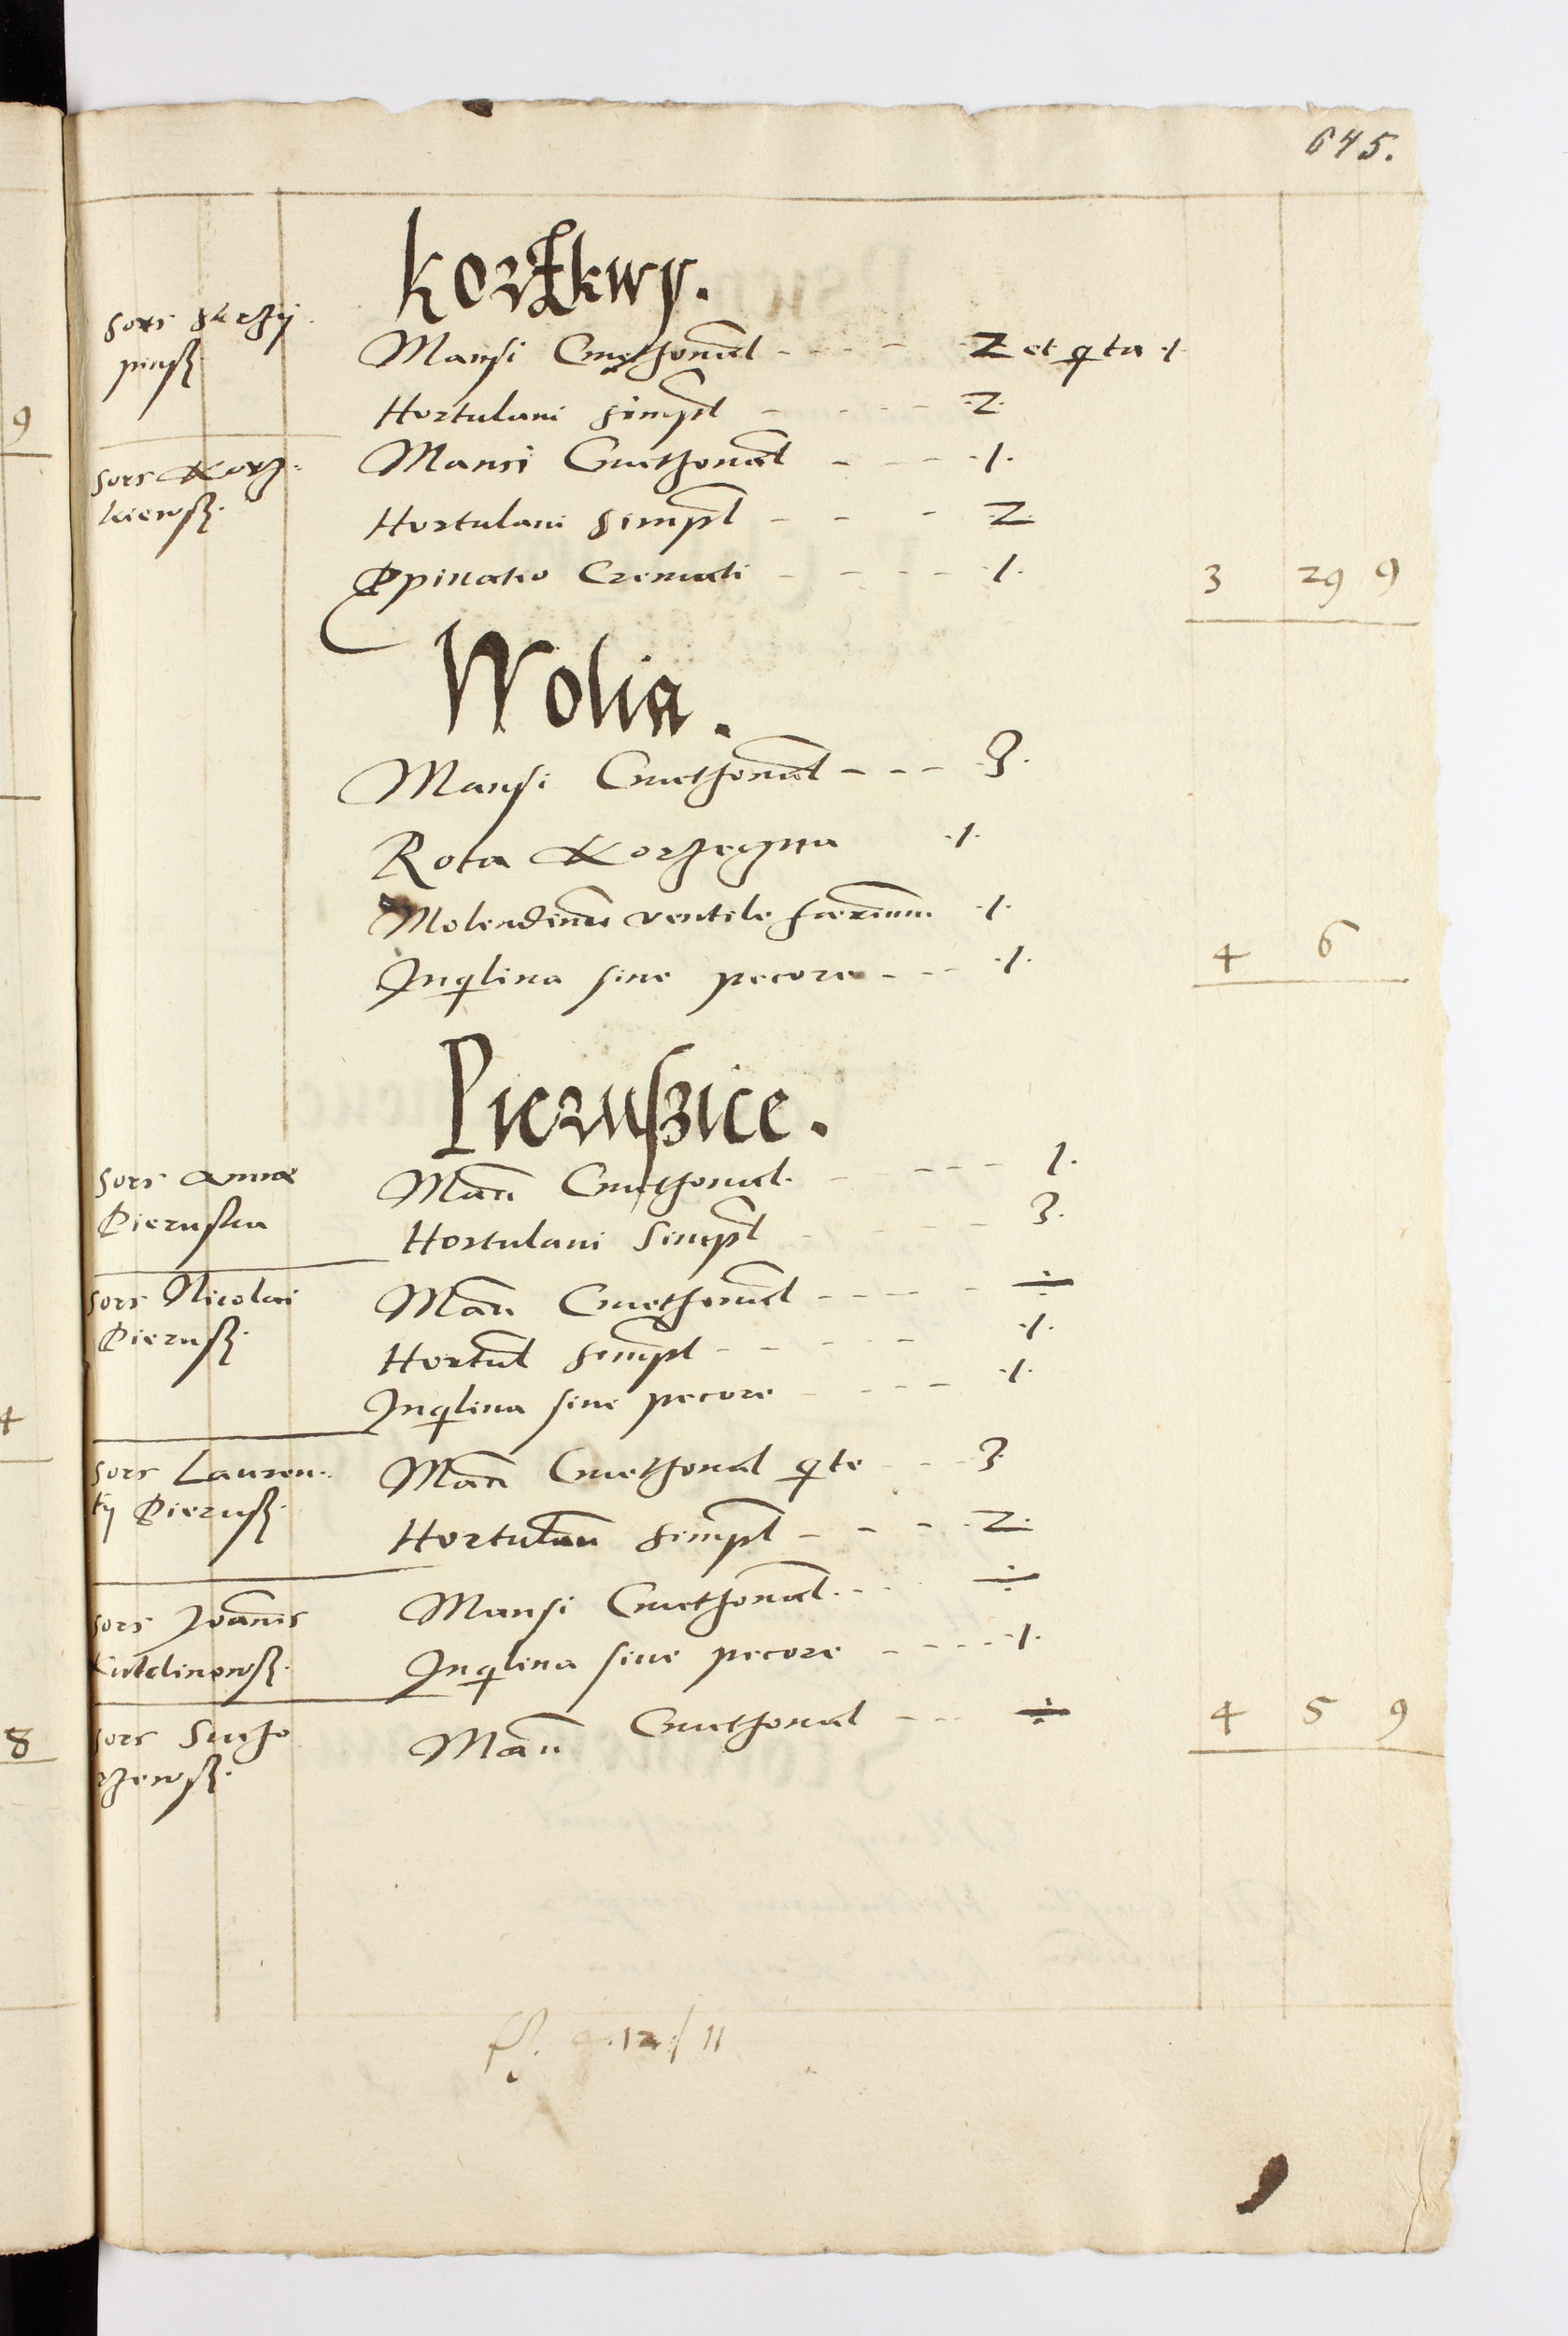 645.
Korzkwy.
Sors Skrzy
pinß
Mansi Cmethonal - - - 2 et qrta 1
Hortulani simpl - - - 2
Sors Korz=
kiewß.
Mansi Cmethonal - - - 1.
Hortulani simpl - - - 2
Propinatio Cremati - - - - 1. 3 29 9
Wolia.
Mansi Cmethonal - - - 3.
Rota Korzegna 1.
Molendinum ventile 1.
Inqlina sine pecore - - - 1. 4 6
Pierußice.
Sors Annæ
Pieruska
Man Cmethonal. - - - 1.
Hortulani Simpl - 3.
Sors Nicolai
Pieruß.
Man Cmethonal - - - - ÷
Hortul simpl - - - - 1.
Inqlina sine pecore - - - 1.
Sors Lauren=
tij Pieruß.
Man Cmethonal qrte - - - 3
Hortulan simpl - - - 2.
Sors Joannis
Kutclinowß.
Mansi Cmethonal. - - - ÷
Inqlina sine pecore - - - - 1.
Sors Sucho
rzewß.
Man Cmethonal - - - ÷ 4 5 9
fl. 4.12/11
9
4
8